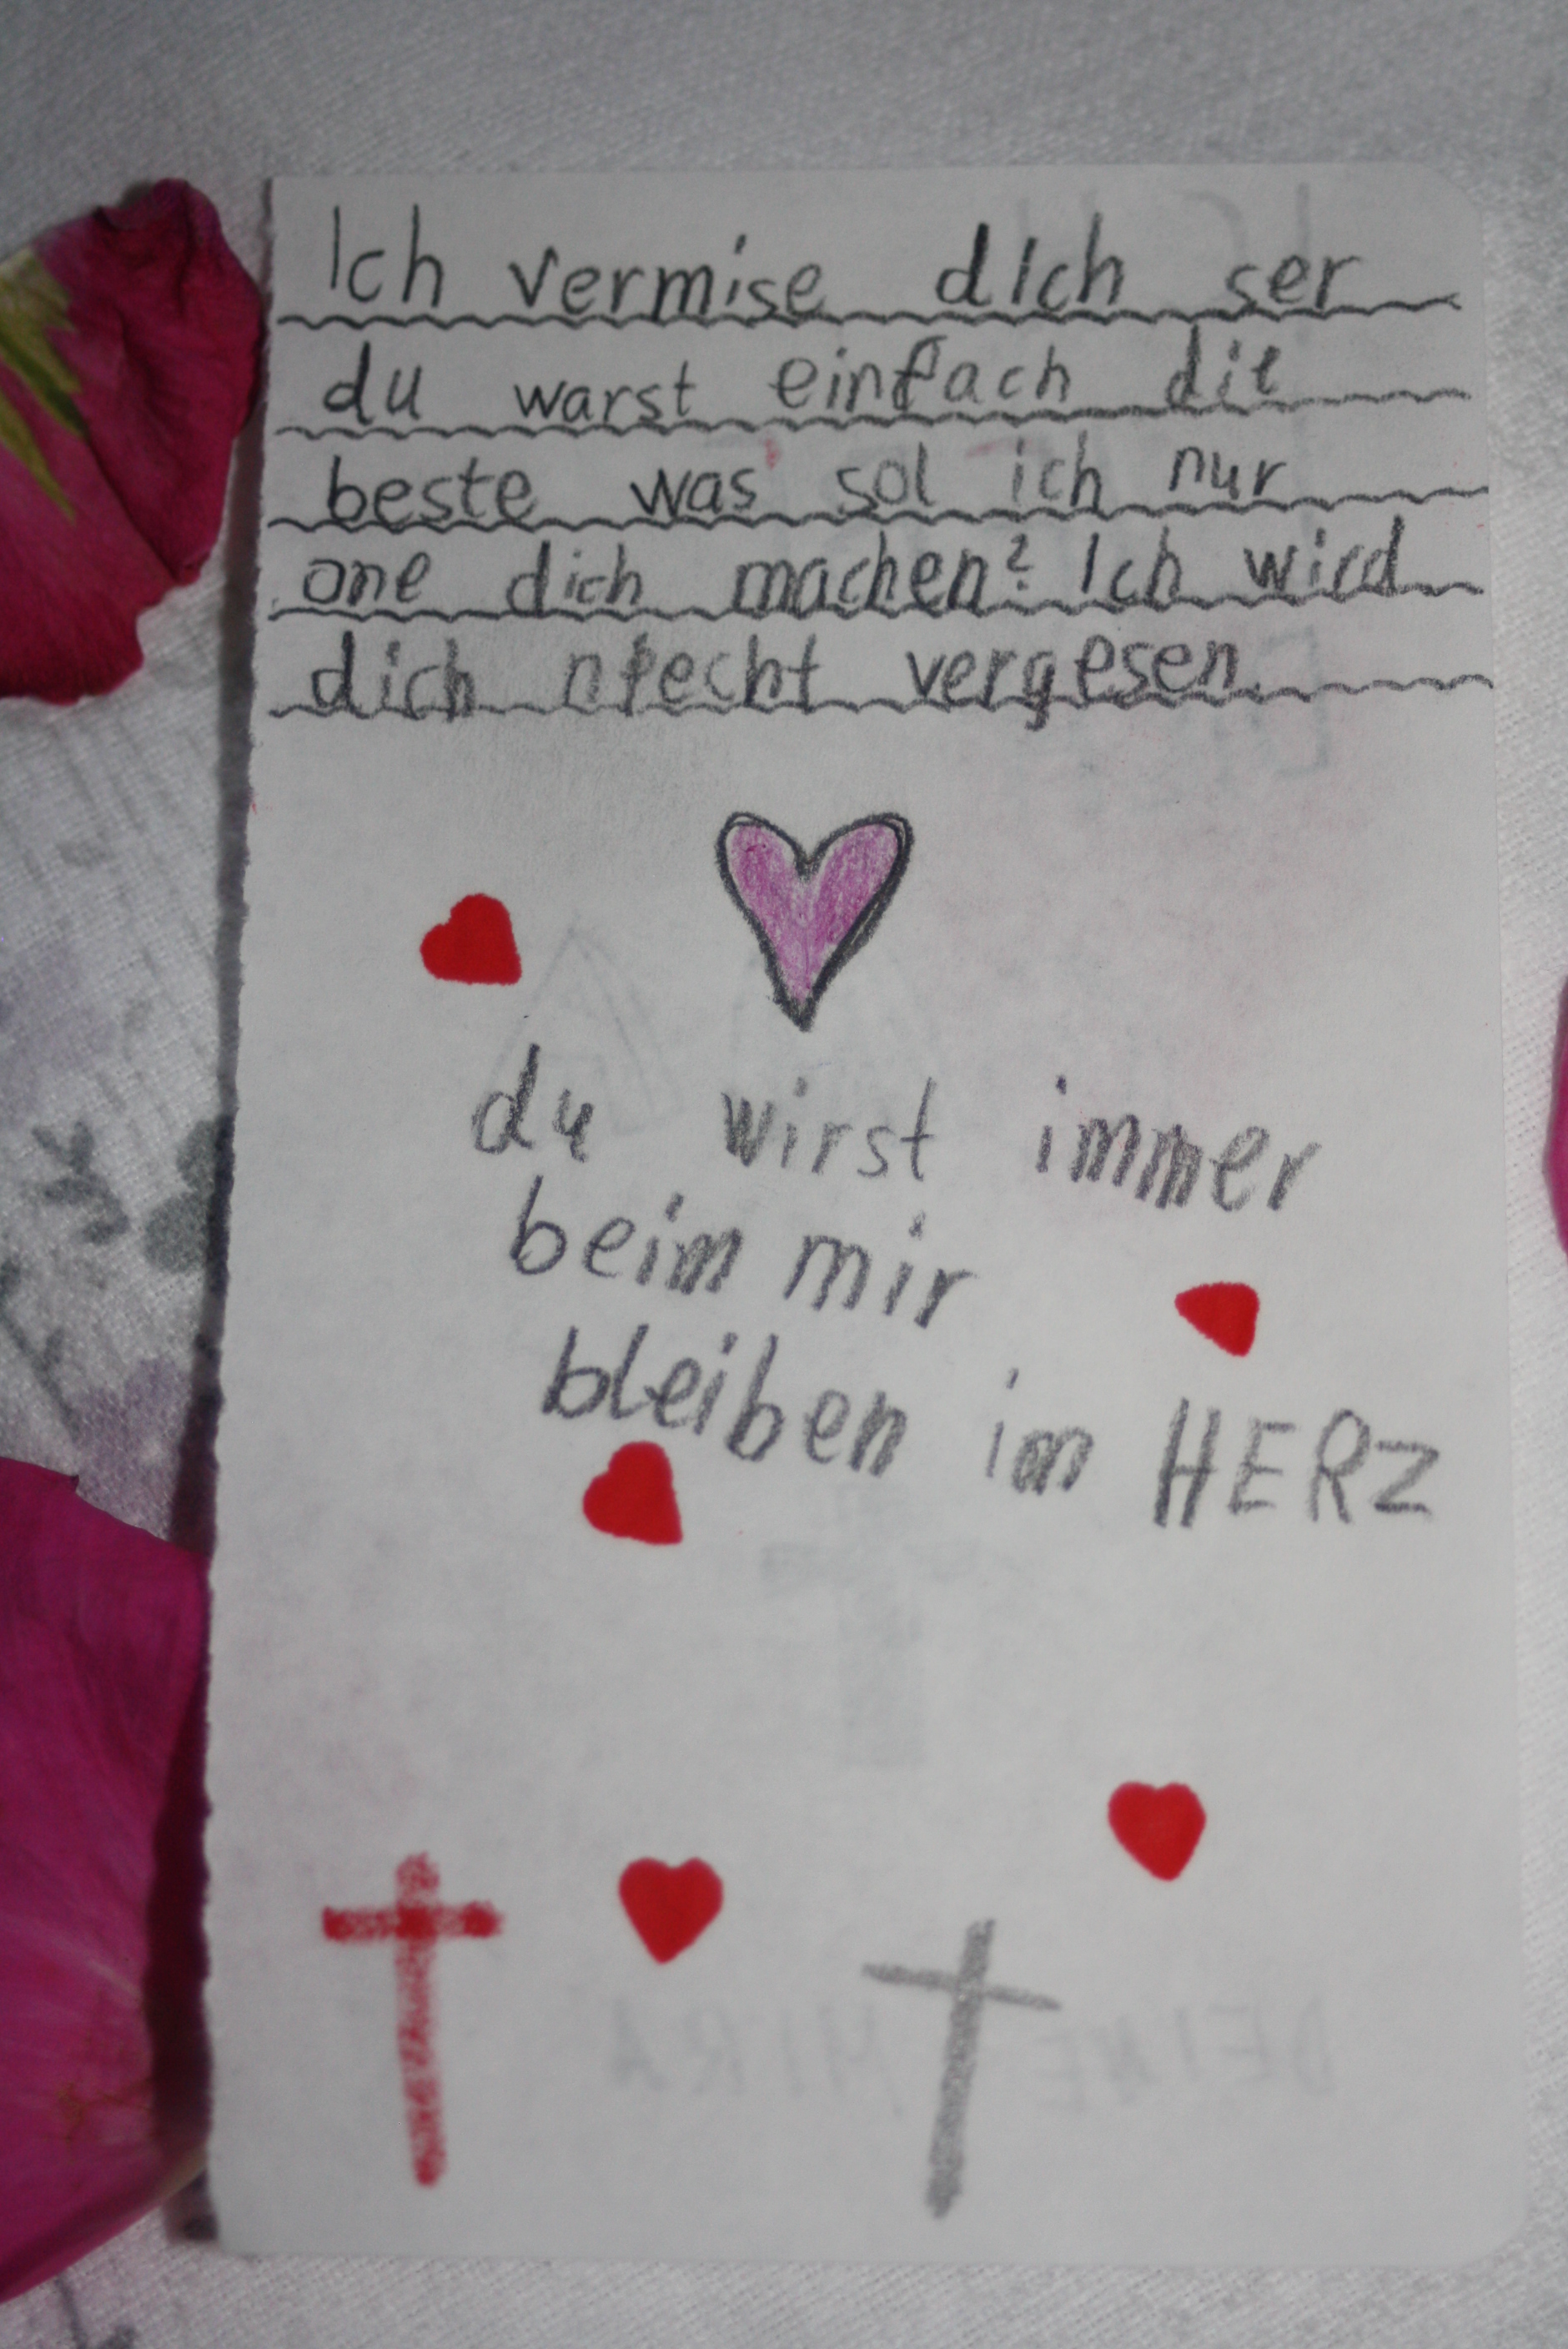 Ich vermise dIch ser
du warst einfach die
beste was sol ich nur
one dich machen? Ich wird
dich niecht vergesen.
du wirst immer
beim mir
bleiben im HERZ
DEINE MIRA